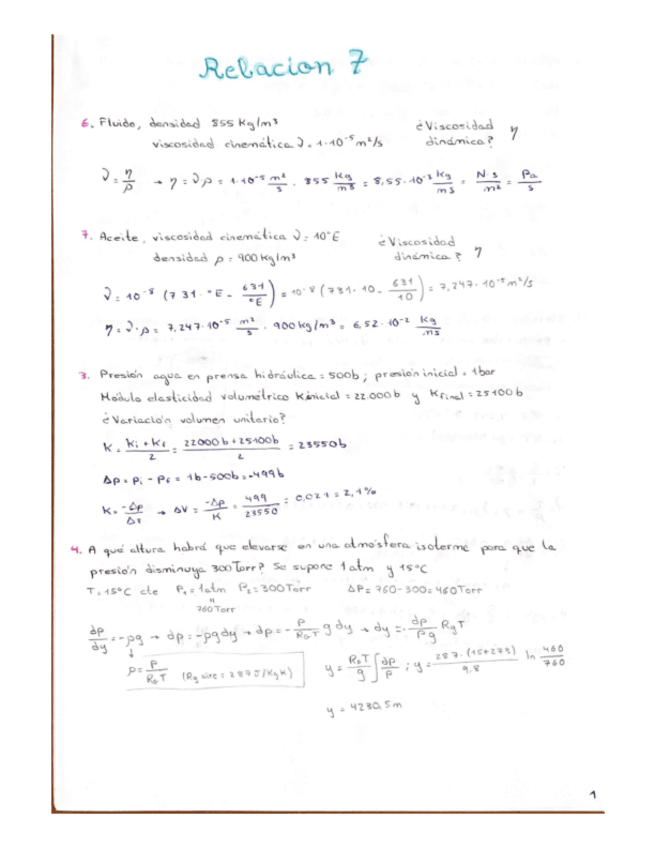 Relacion 7
6. Fluido, densidad 855 Kg/m³ ¿Viscosidad η
viscosidad cinemática ν = 1·10⁻⁵ m²/s dinámica?
ν = η/ρ → η = ν·ρ = 1·10⁻⁵ m²/s · 855 Kg/m³ = 8,55·10⁻³ Kg/ms = N·s/m² = Pa/s
7. Aceite, viscosidad cinemática ν = 10°E ¿Viscosidad
densidad ρ = 900 Kg/m³ dinámica? η
ν = 10⁻⁸ (731·°E - 631/°E) = 10⁻⁸ (731·10 - 631/10) = 7,247·10⁻⁵ m²/s
η = ν·ρ = 7,247·10⁻⁵ m²/s · 900 kg/m³ = 6,52·10⁻² Kg/ms
3. Presión agua en prensa hidráulica = 500b; presión inicial = 1bar
Módulo elasticidad volumétrico Kinicial = 22.000b y Kfinal = 25100b
¿Variación volumen unitario?
K = Ki + Kf/2 = 22000b + 25100b/2 = 23550b
Δp = Pi - Pf = 1b - 500b = -499b
K = -Δp/Δv → ΔV = -Δp/K = 499/23550 = 0,021 = 2,1%
4. A qué altura habrá que elevarse en una atmósfera isoterma para que la
presión disminuya 300 Torr? Se supone 1 atm y 15°C
T = 15°C cte P₁ = 1atm P₂ = 300 Torr ΔP = 760 - 300 = 460 Torr
760 Torr
dp/dy = -ρg → dp = -ρgdy → dp = - P/RgT g dy → dy = - dp/Pg RgT
ρ = P/RgT (Rg aire = 287 J/KgK) y = RgT/g ∫ dp/P ; y = 287·(15+273)/9.8 ln 460/760
y = 4230,5m
1